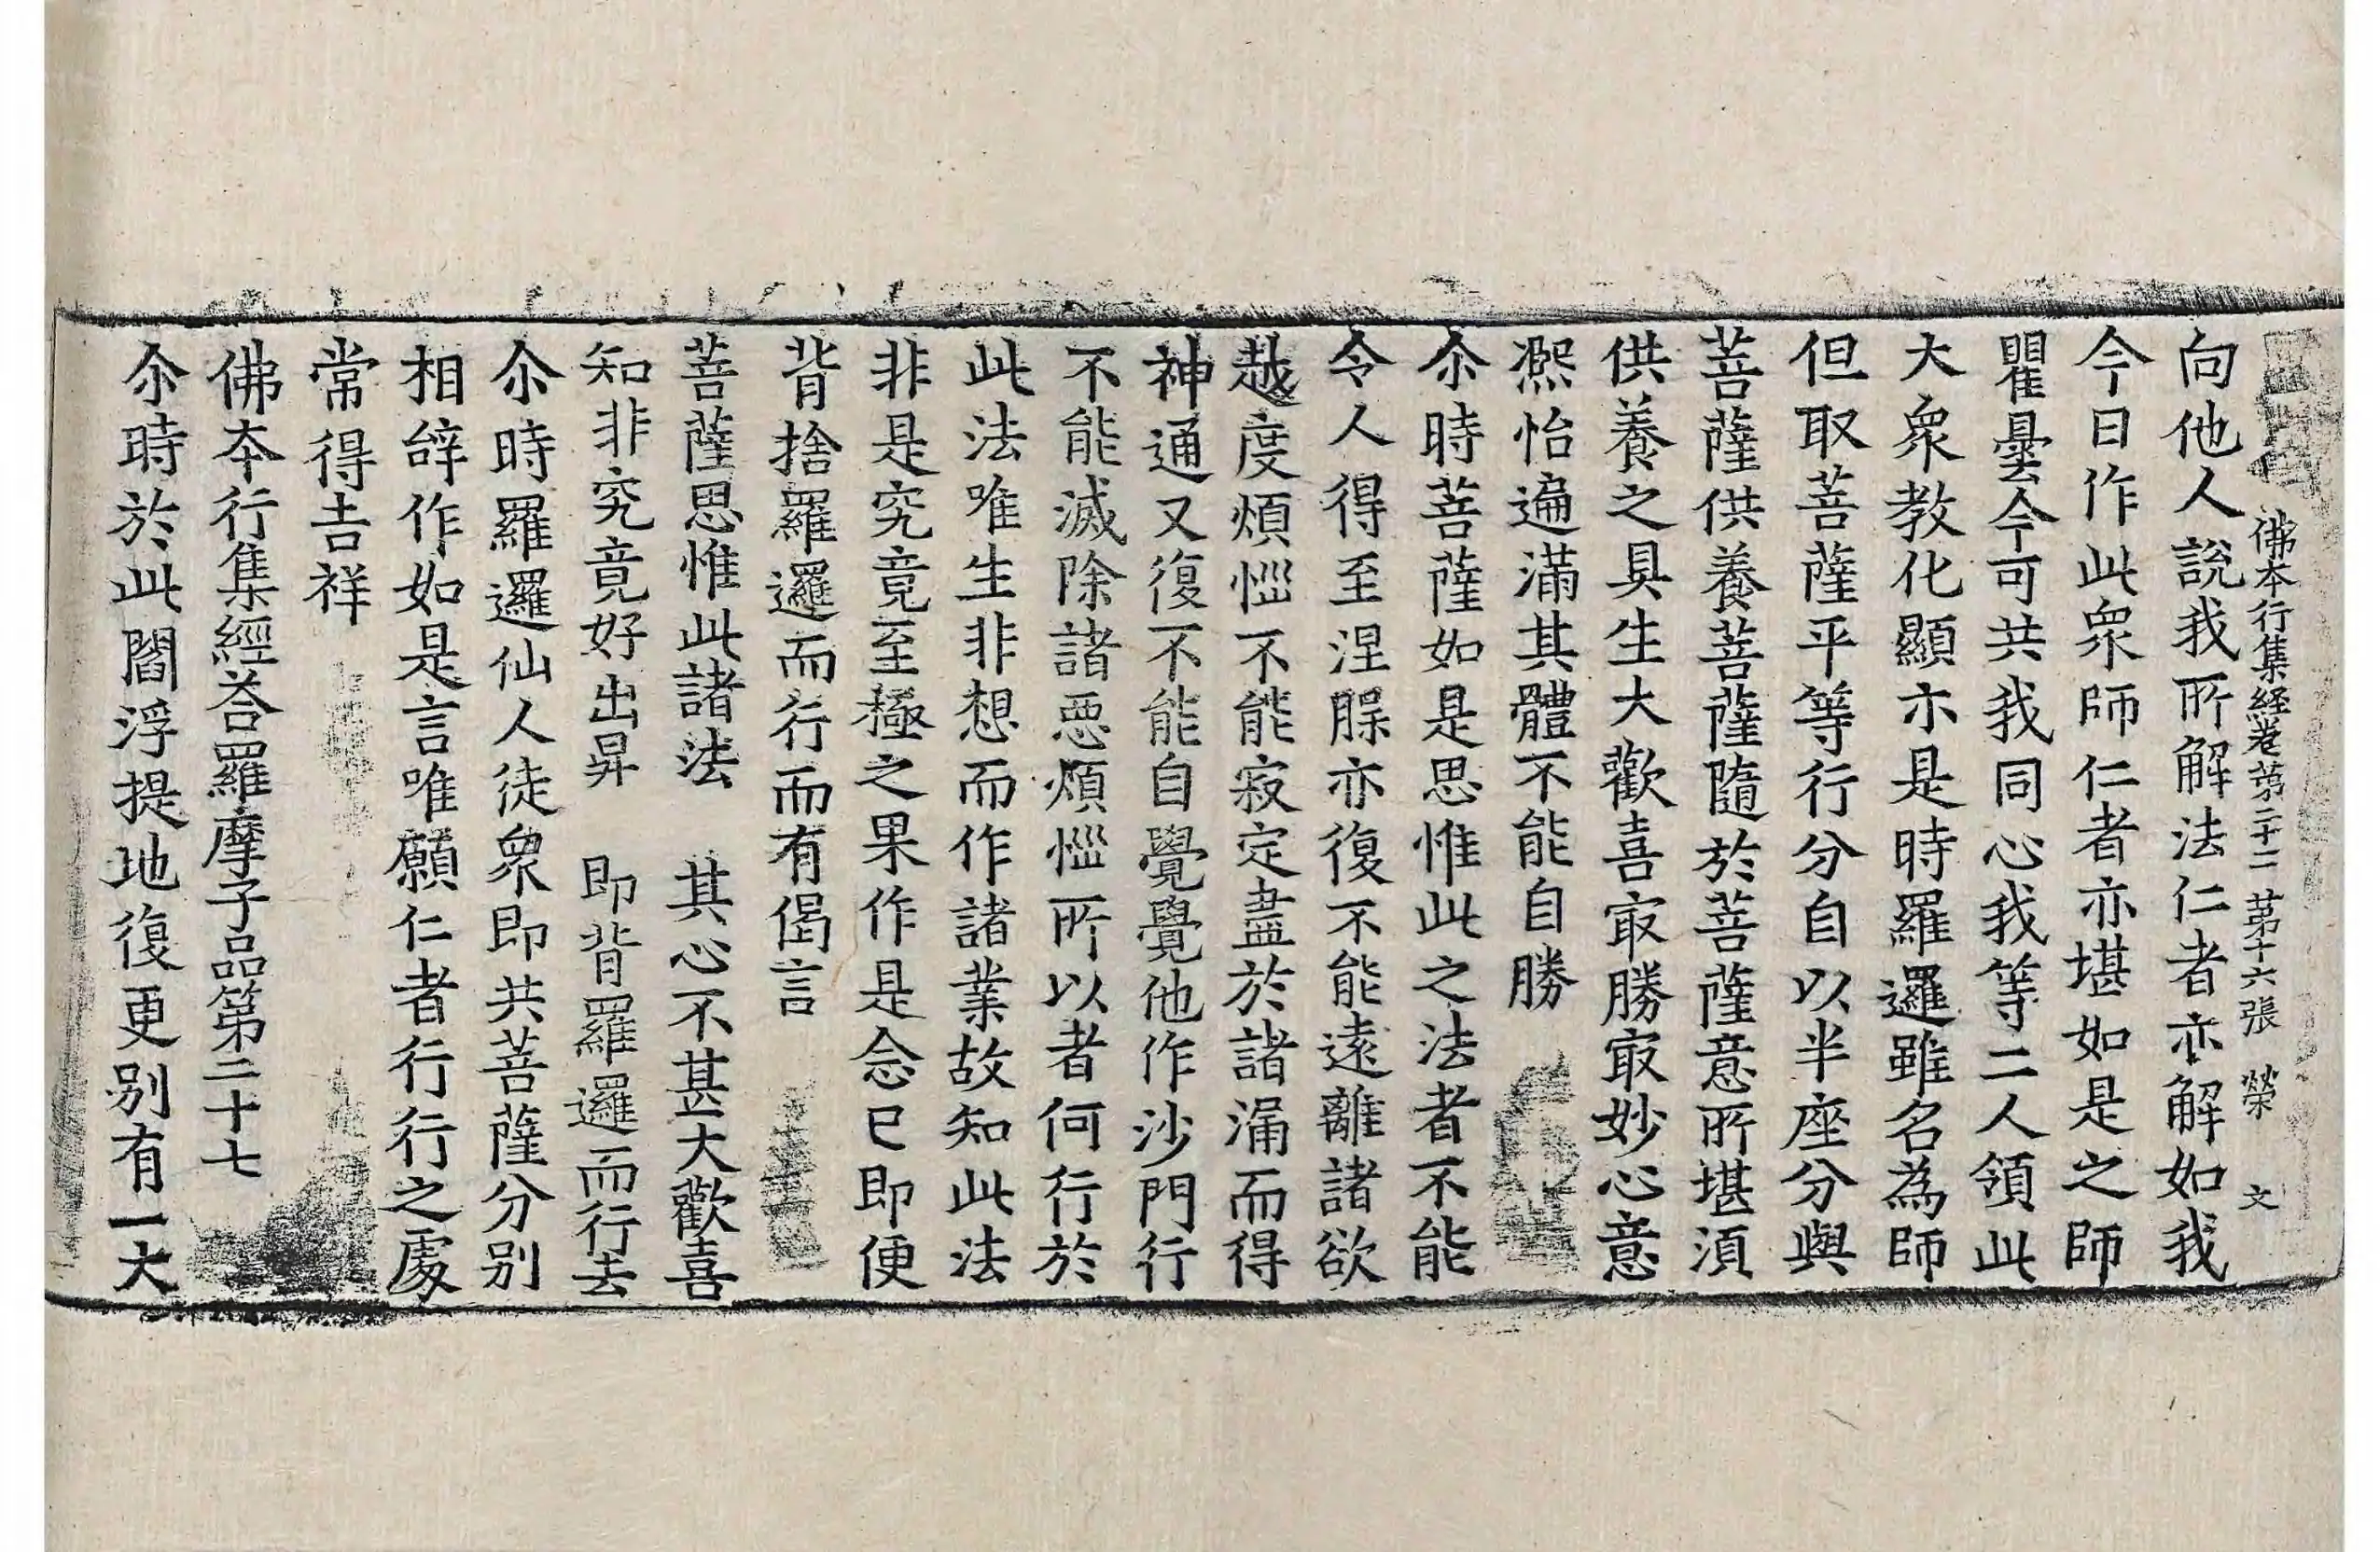 佛本行集経卷苐二十二 苐十六張 榮 文
向他人說我所解法仁者亦解如我
今日作此衆師仁者亦堪如是之師
瞿曇今可共我同心我等二人領此
大衆教化顯示是時羅邏雖名為師
但取菩薩平等行分自以半座分與
菩薩供養菩薩隨於菩薩意所堪湏
供養之具生大歡喜㝡勝㝡妙心意
凞怡遍滿其體不能自勝
尒時菩薩如是思惟此之法者不能
令人得至涅髹亦復不能遠離諸欲
越度煩惱不能寂定盡於諸漏而得
神通又復不能自覺覺他作沙門行
不能滅除諸惡煩惱所以者何行於
此法唯生非想而作諸業故知此法
非是究竟至極之果作是念已即便
背捨羅邏而行而有偈言
菩薩思惟此諸法 其心不甚大歡喜
知非究竟好出昇 即背羅邏而行去
尒時羅邏仙人徒衆即共菩薩分別
相辝作如是言唯願仁者行行之處
常得吉祥
佛本行集經荅羅摩子品第二十七
尒時於此閻浮提地復更別有一大